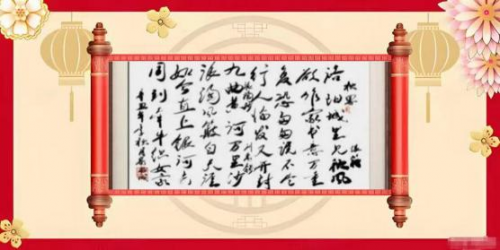 秋思
张籍
洛阳城里见秋风
欲作家书意万重
复恐匆匆说不尽
行人临发又开封
浪淘沙
刘禹锡
九曲黄河万里沙
浪淘风簸自天涯
如今直上银河去
同到牵牛织女家